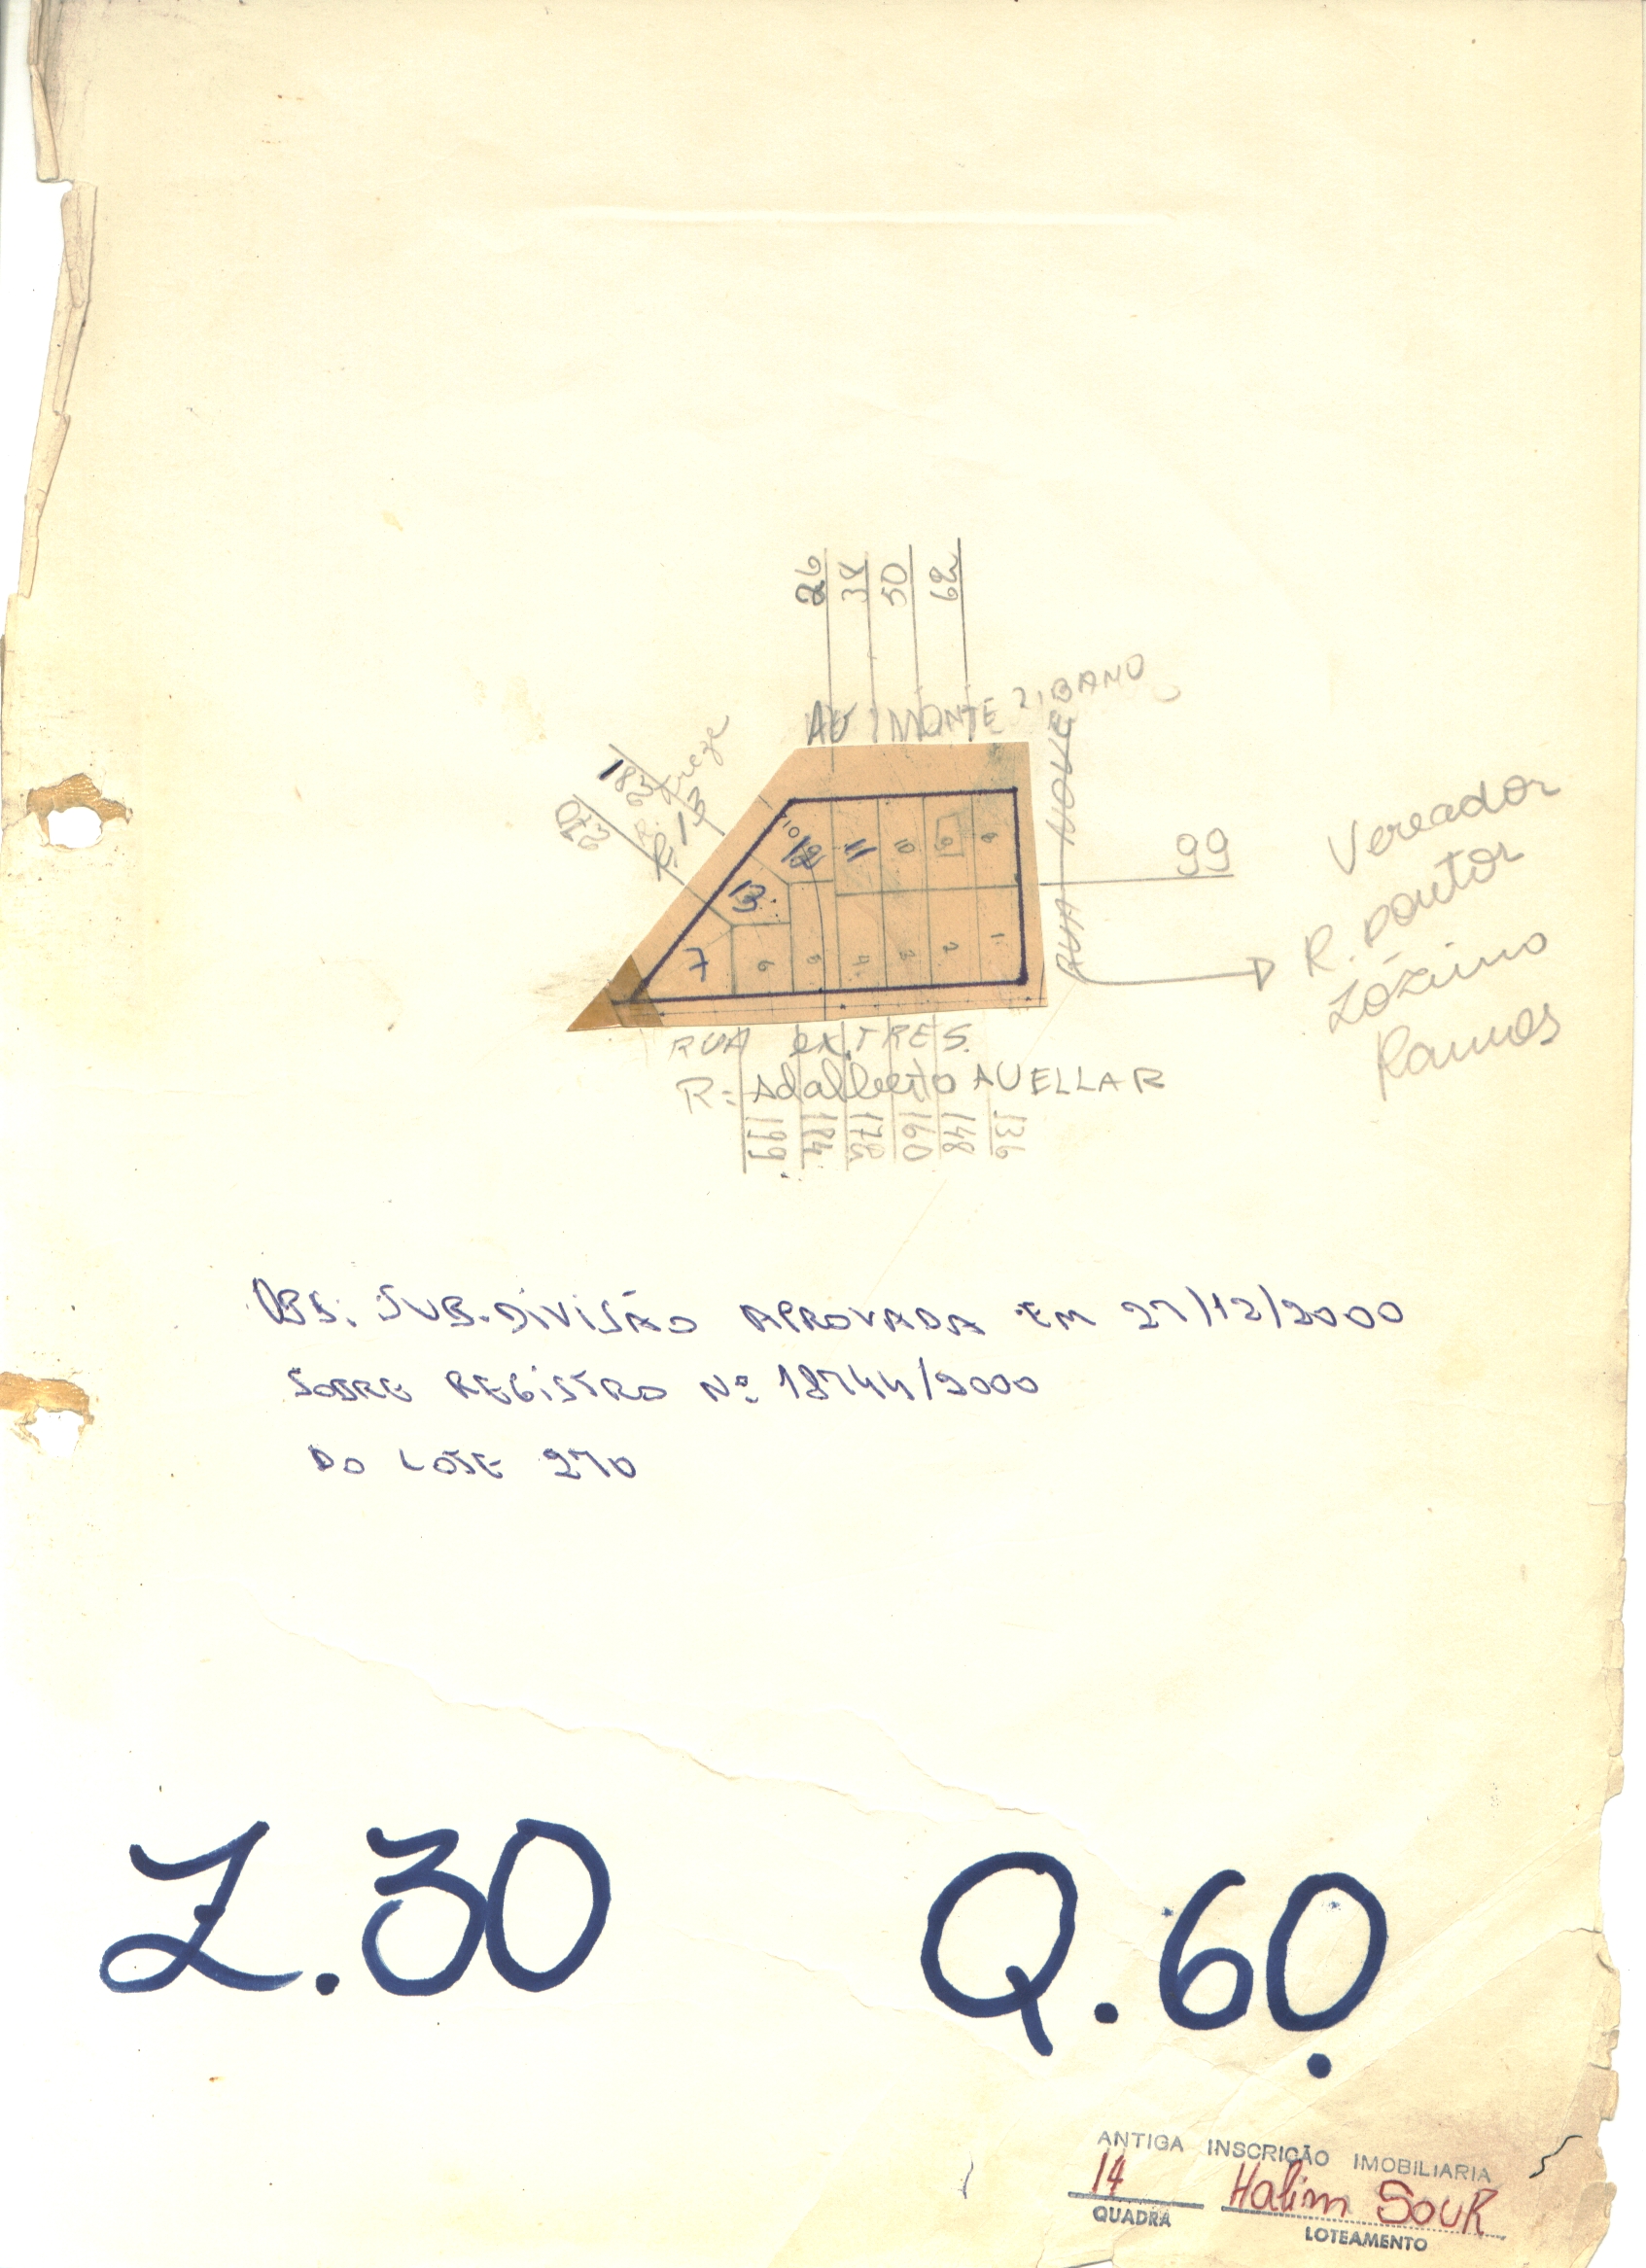 26
38
50
62
AV. MONTE LIBANO
270
182
R. treze
R. 13
RUA NOVE
99
Vereador
R. Doutor
Zózimo
Ramos
10
12
11
10
9
8
13
7
6
5
4
3
2
1
RUA EX. TRES.
R: Adalberto AVELLAR
199
184
172
160
148
136
OBS: SUB-DIVISÃO APROVADA EM 27/12/2000
SOBRE REGISTRO Nº 18744/2000
DO LOTE 270
Z.30 Q.60
ANTIGA INSCRIÇÃO IMOBILIARIA
14 Halim SouR
QUADRA LOTEAMENTO